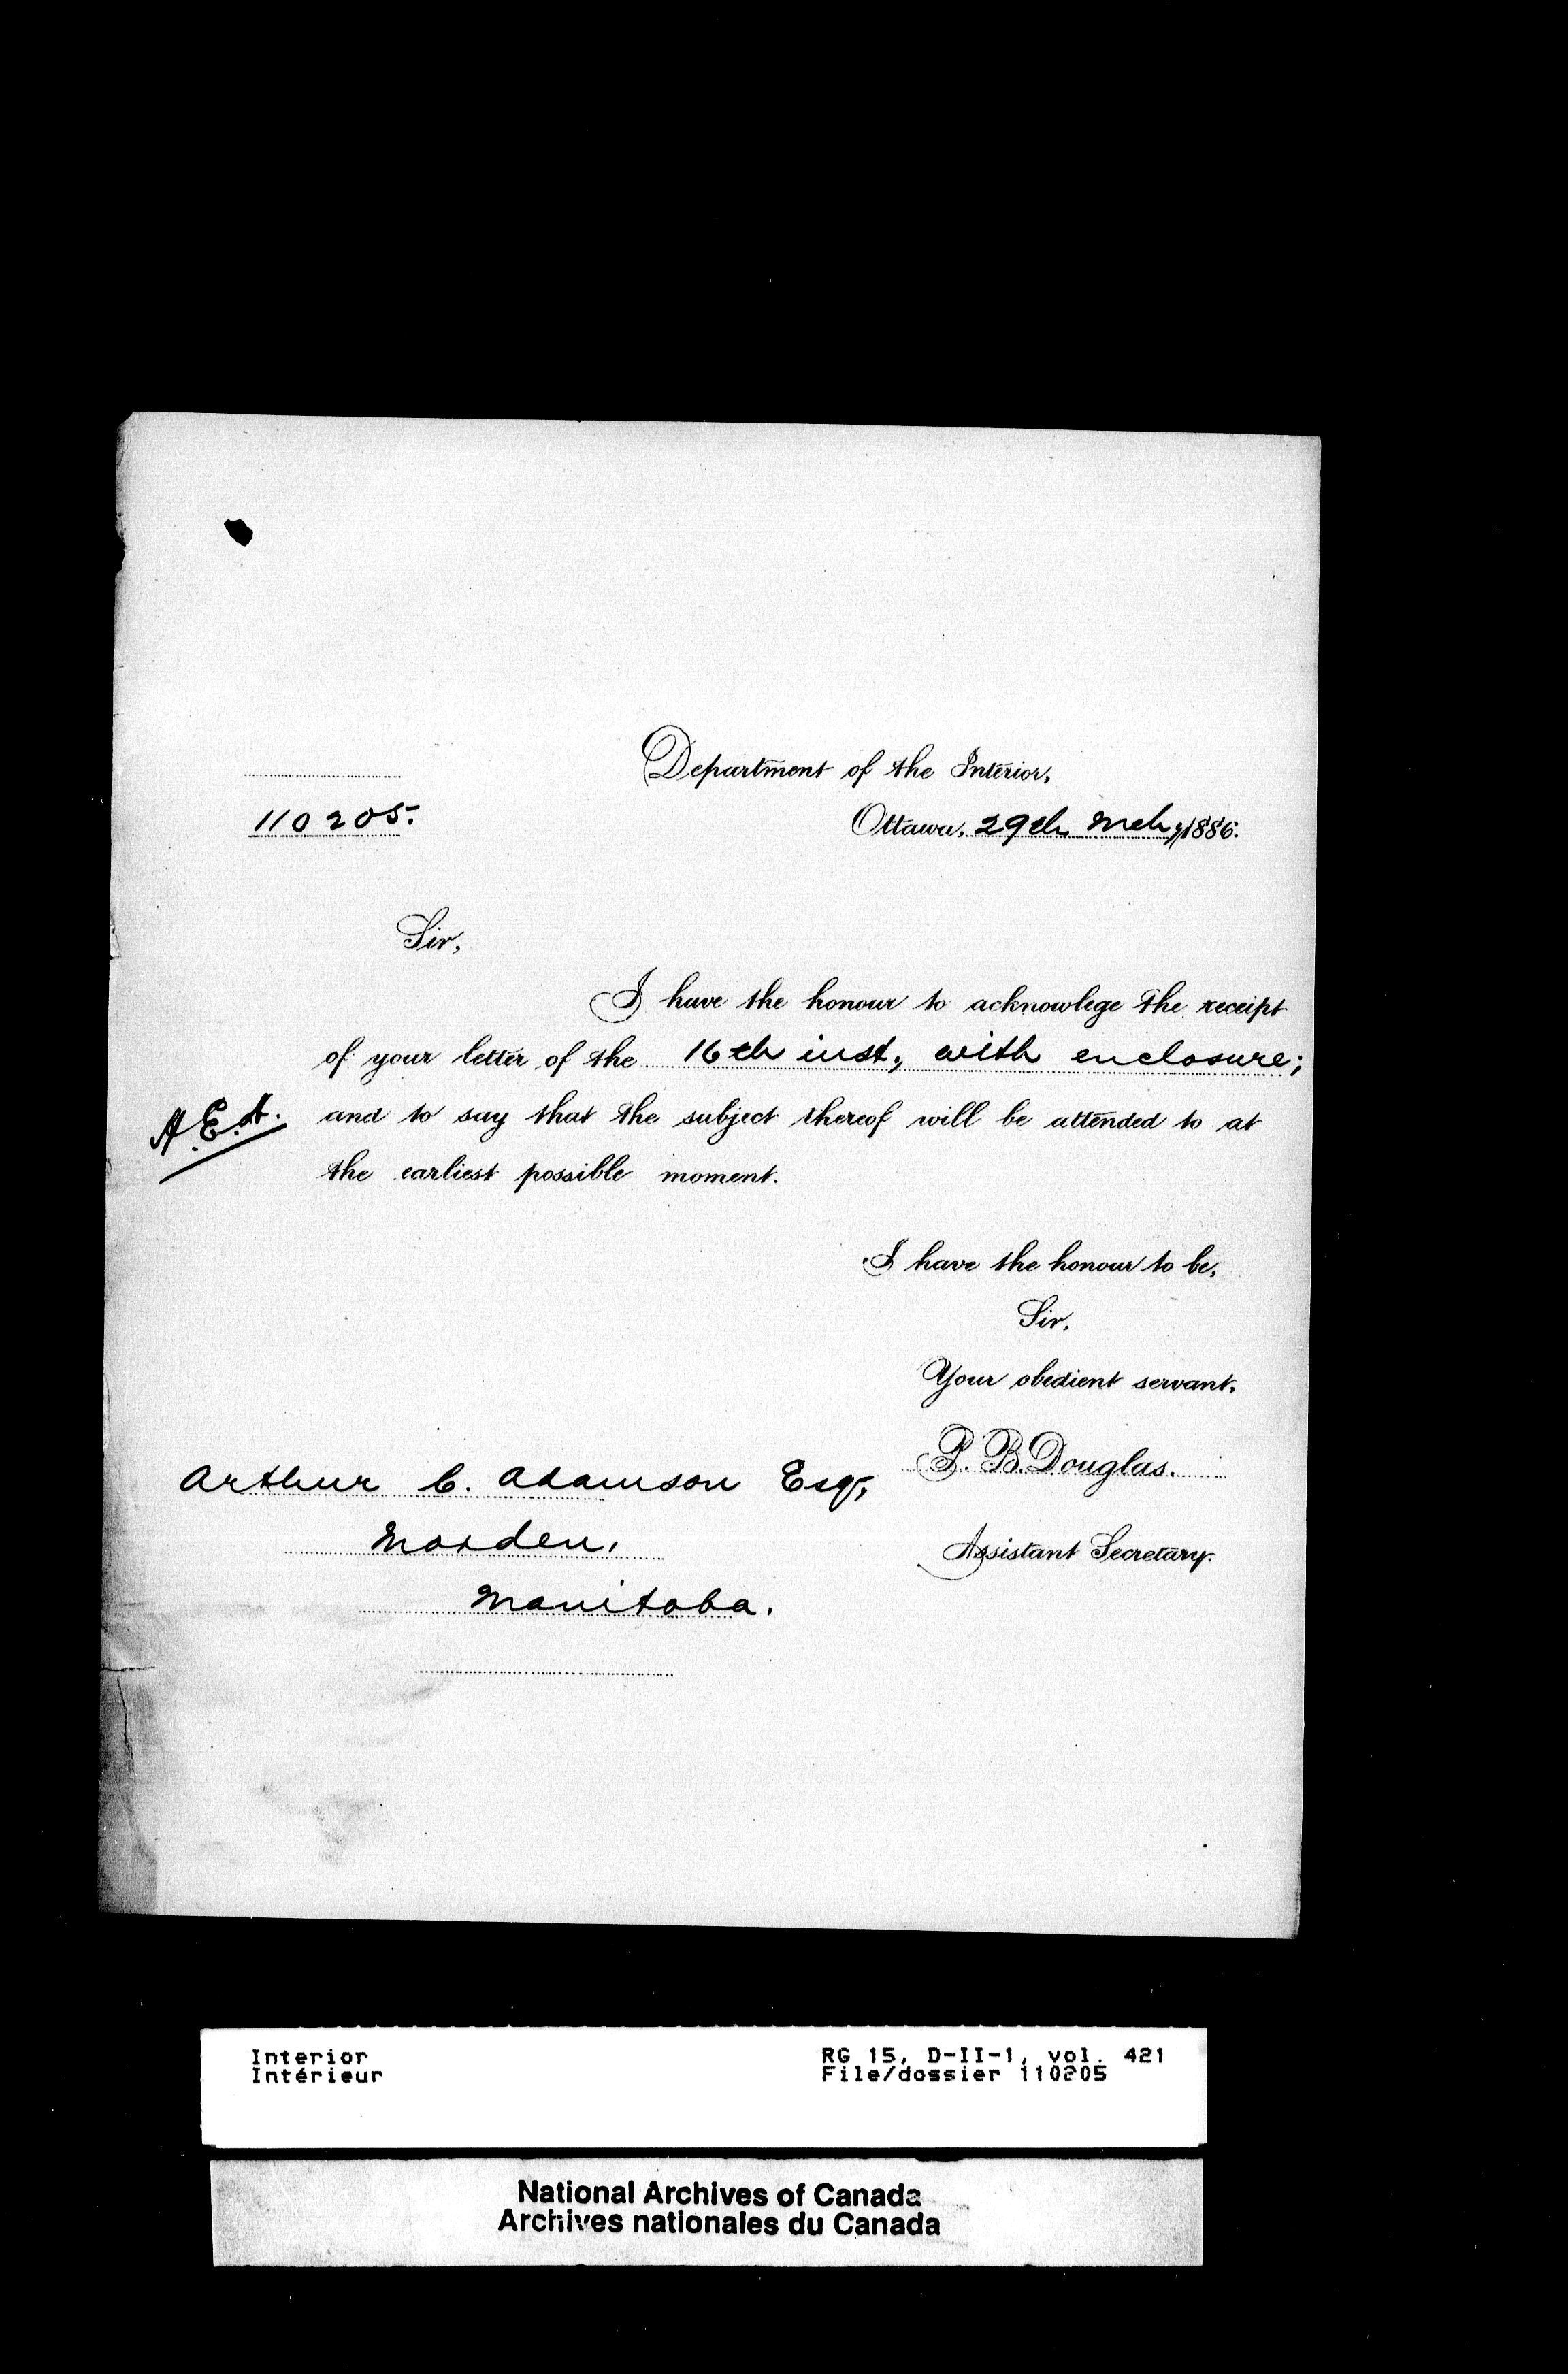 Department of the Interior,
110205.
Ottawa, 29th Mch, 1886.
Sir,
I have the honour to acknowlege the receipt
of your letter of the 16th inst., with enclosure;
and to say that the subject thereof will be attended to at
the earliest possible moment.
I have the honour to be,
Sir,
Your obedient servant,
P. B. Douglas.
Assistant Secretary.
Arthur C. Adamson Esq,
Morden,
Manitoba.
Interior
Intérieur
RG 15, D-II-1, vol. 421
File/dossier 110205
National Archives of Canada
Archives nationales du Canada